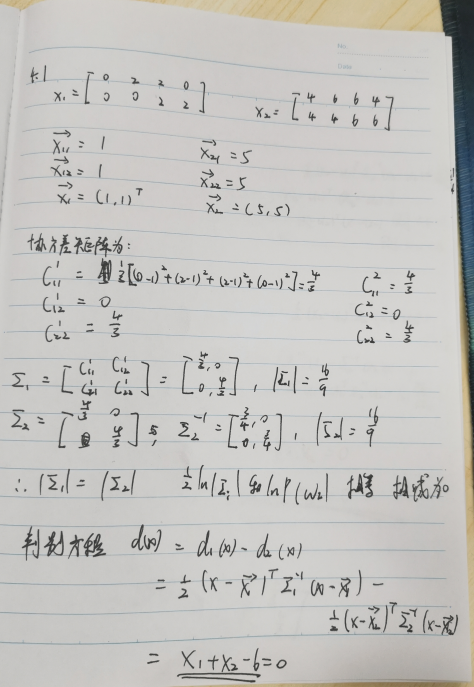 No.
Date.
4.1
X₁ = [0 2 2 0; 0 0 2 2] X₂ = [4 6 6 4; 4 4 6 6]
X₁₁ = 1 X₂₁ = 5
X₁₂ = 1 X₂₂ = 5
X₁ = (1,1)ᵀ X₂ = (5,5)
协方差矩阵为:
C₁₁¹ = 1/3[(0-1)²+(2-1)²+(2-1)²+(0-1)²] = 4/3 C₁₁² = 4/3
C₁₂¹ = 0 C₁₂² = 0
C₂₂¹ = 4/3 C₂₂² = 4/3
Σ₁ = [C₁₁¹ C₁₂¹; C₂₁¹ C₂₂¹] = [4/3, 0; 0, 4/3], |Σ₁| = 16/9
Σ₂ = [4/3 0; 4/3], Σ₂⁻¹ = [3/4, 0; 0, 3/4], |Σ₂| = 16/9
∴ |Σ₁| = |Σ₂| 1/2 ln|Σᵢ| ln P(ω₂)
判别方程 d(x) = d₁(x) - d₂(x)
= 1/2 (x - X₁)ᵀ Σ₁⁻¹ (x - X₁) -
1/2 (x - X₂)ᵀ Σ₂⁻¹ (x - X₂)
= X₁ + X₂ - 6 = 0